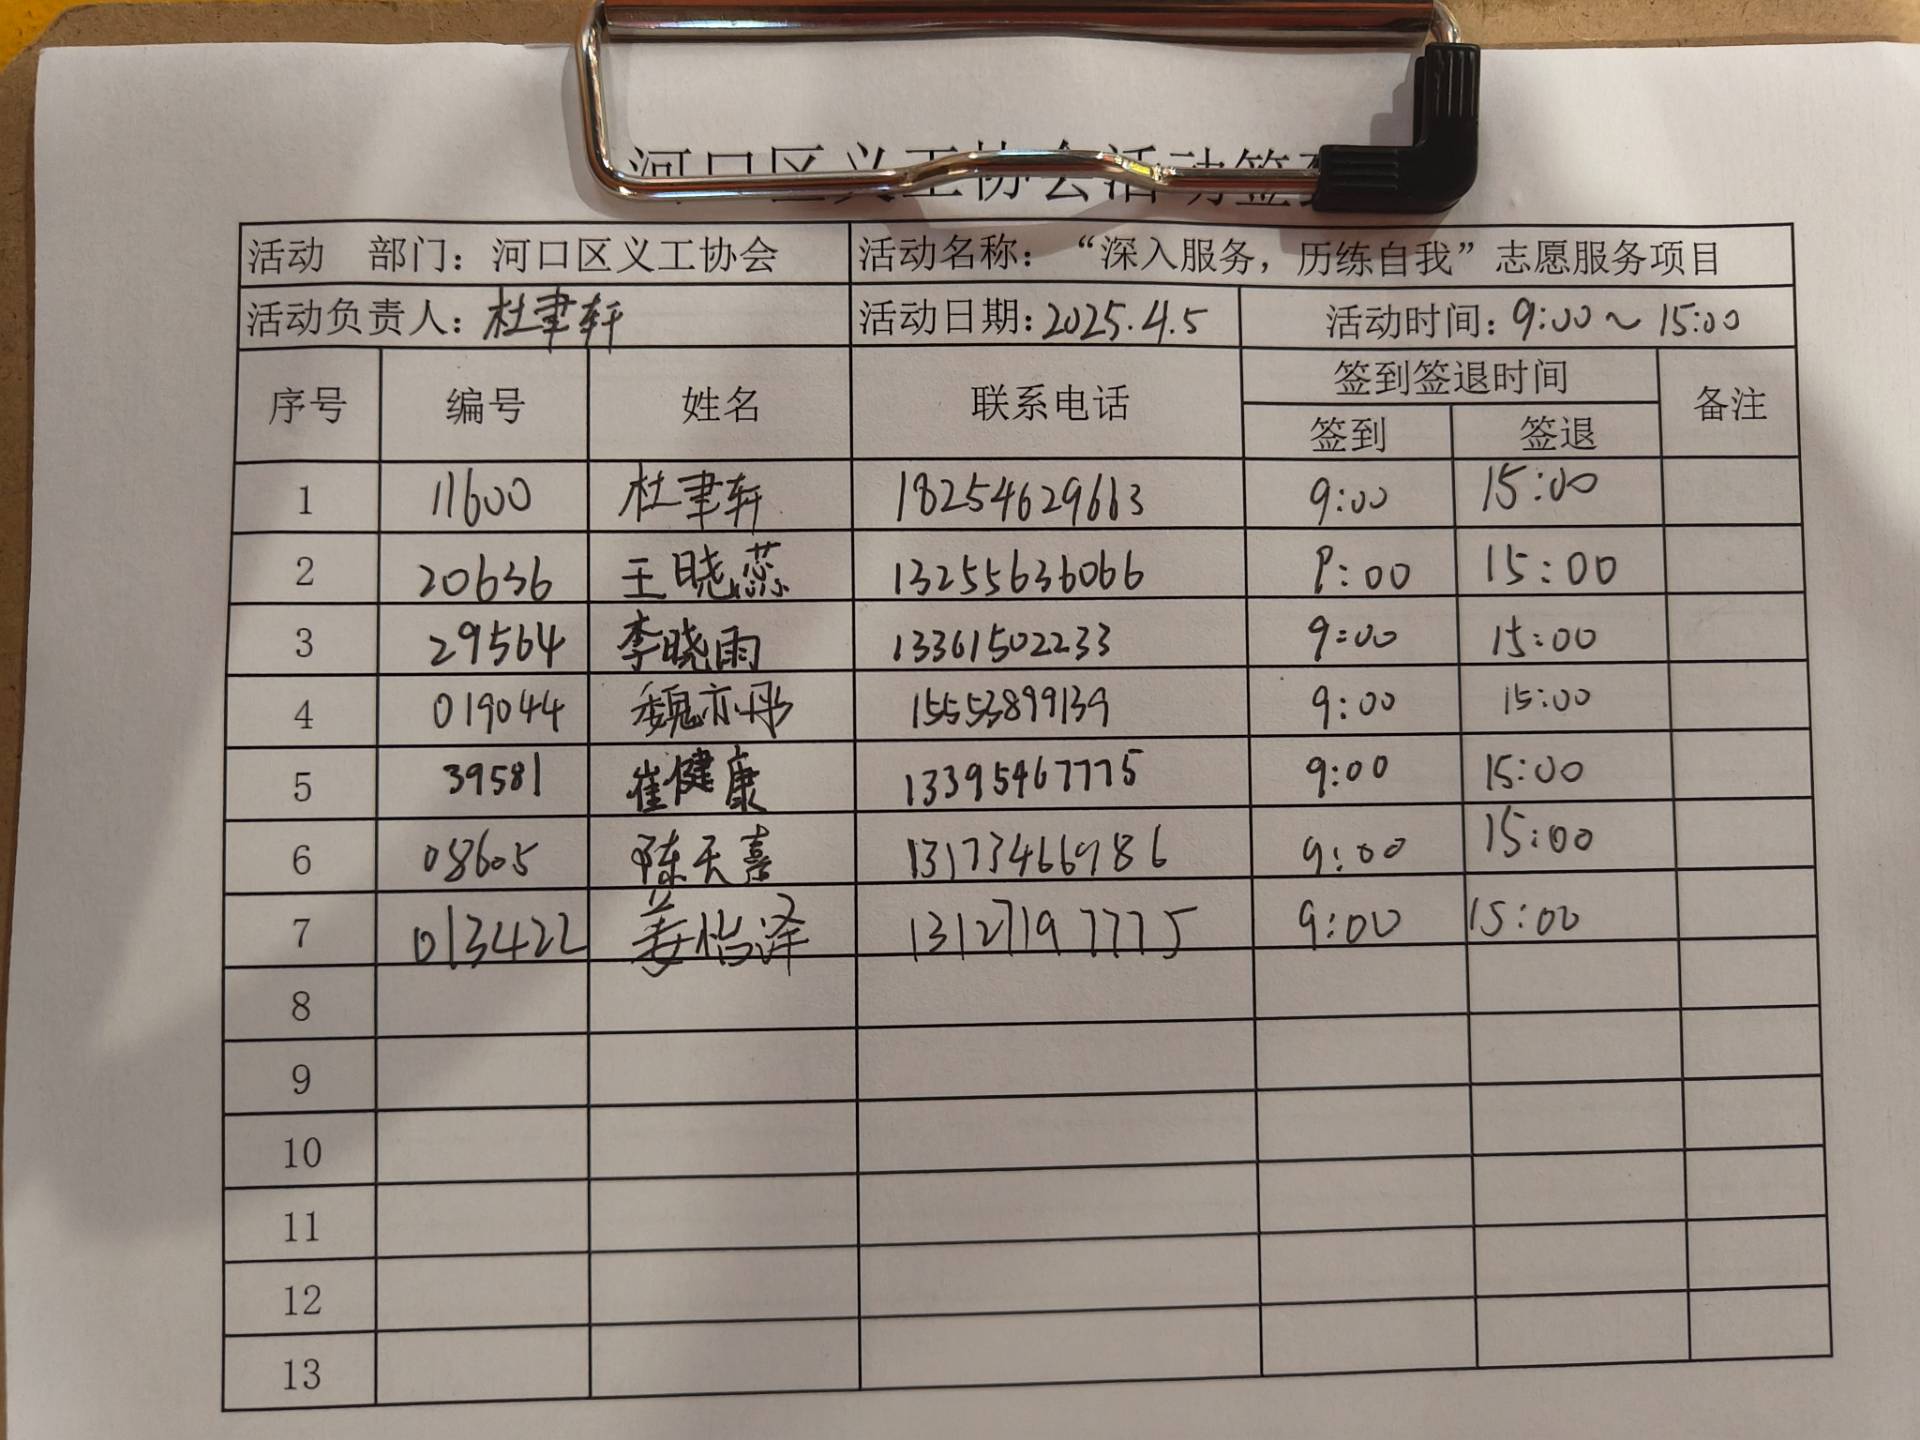 河口区义工协会活动签到
活动 部门：河口区义工协会 活动名称：“深入服务，历练自我”志愿服务项目
活动负责人：杜聿轩 活动日期：2025.4.5 活动时间：9:00～15:00
序号 编号 姓名 联系电话 签到签退时间 备注
签到 签退
1 11600 杜聿轩 18254629613 9:00 15:00
2 20636 王晓蕊 13255636066 9:00 15:00
3 29564 李晓雨 13361502233 9:00 15:00
4 019044 魏亦彤 15553899139 9:00 15:00
5 39581 崔健康 13395467775 9:00 15:00
6 08605 陈天熹 13173466986 9:00 15:00
7 013422 姜怡泽 13127197775 9:00 15:00
8
9
10
11
12
13